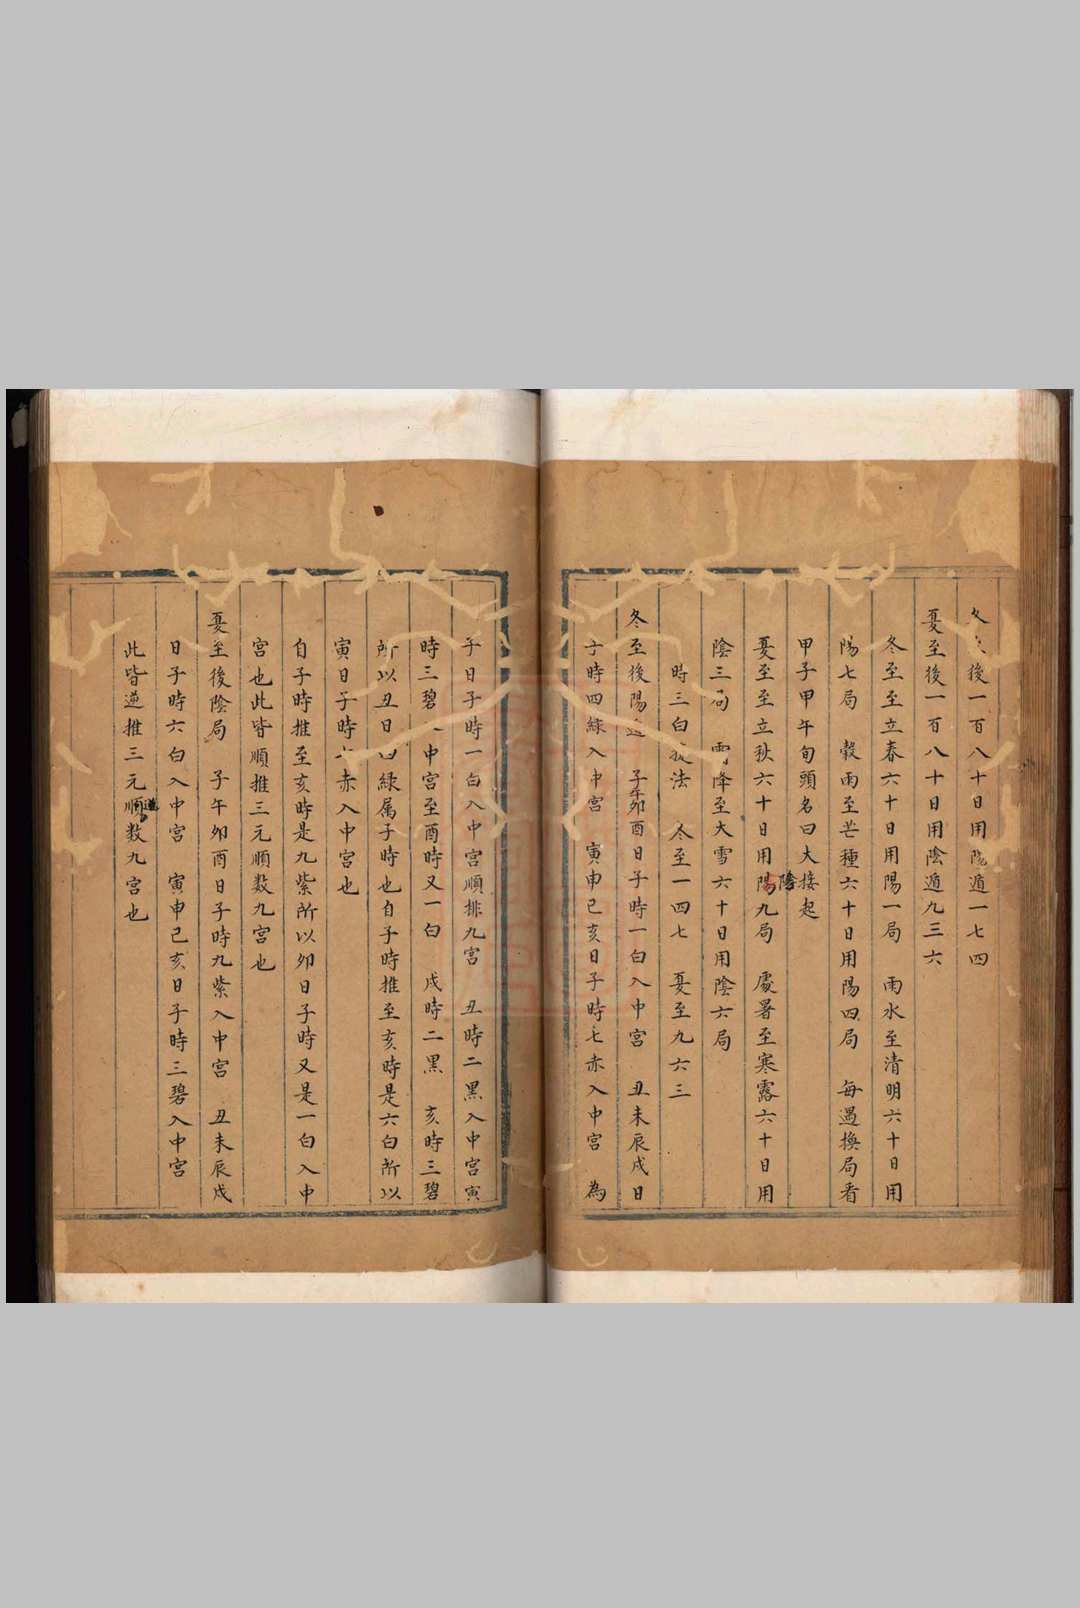 冬後一百八十日用陽遁一七四
夏至後一百八十日用陰遁九三六
冬至至立春六十日用陽一局　雨水至清明六十日用
陽七局　穀雨至芒種六十日用陽四局　每遇換局看
甲子甲午旬頭名曰大接起
夏至至立秋六十日用陽陰九局　處暑至寒露六十日用
陰三局　霜降至大雪六十日用陰六局
時三白捉法　冬至一四七　夏至九六三
冬至後陽遁　子午卯酉日子時一白入中宮　丑未辰戌日
子時四綠入中宮　寅申巳亥日子時七赤入中宮　為
子日子時一白入中宮順排九宮　丑時二黑入中宮寅
時三碧入中宮至酉時又一白　戌時二黑　亥時三碧
所以丑日四綠属子時也自子時推至亥時是六白所以
寅日子時七赤入中宮也
自子時推至亥時是九紫所以卯日子時又是一白入中
宮也此皆順推三元順数九宮也
夏至後陰局　子午卯酉日子時九紫入中宮　丑未辰戌
日子時六白入中宮　寅申巳亥日子時三碧入中宮
此皆逆推三元順逆数九宮也